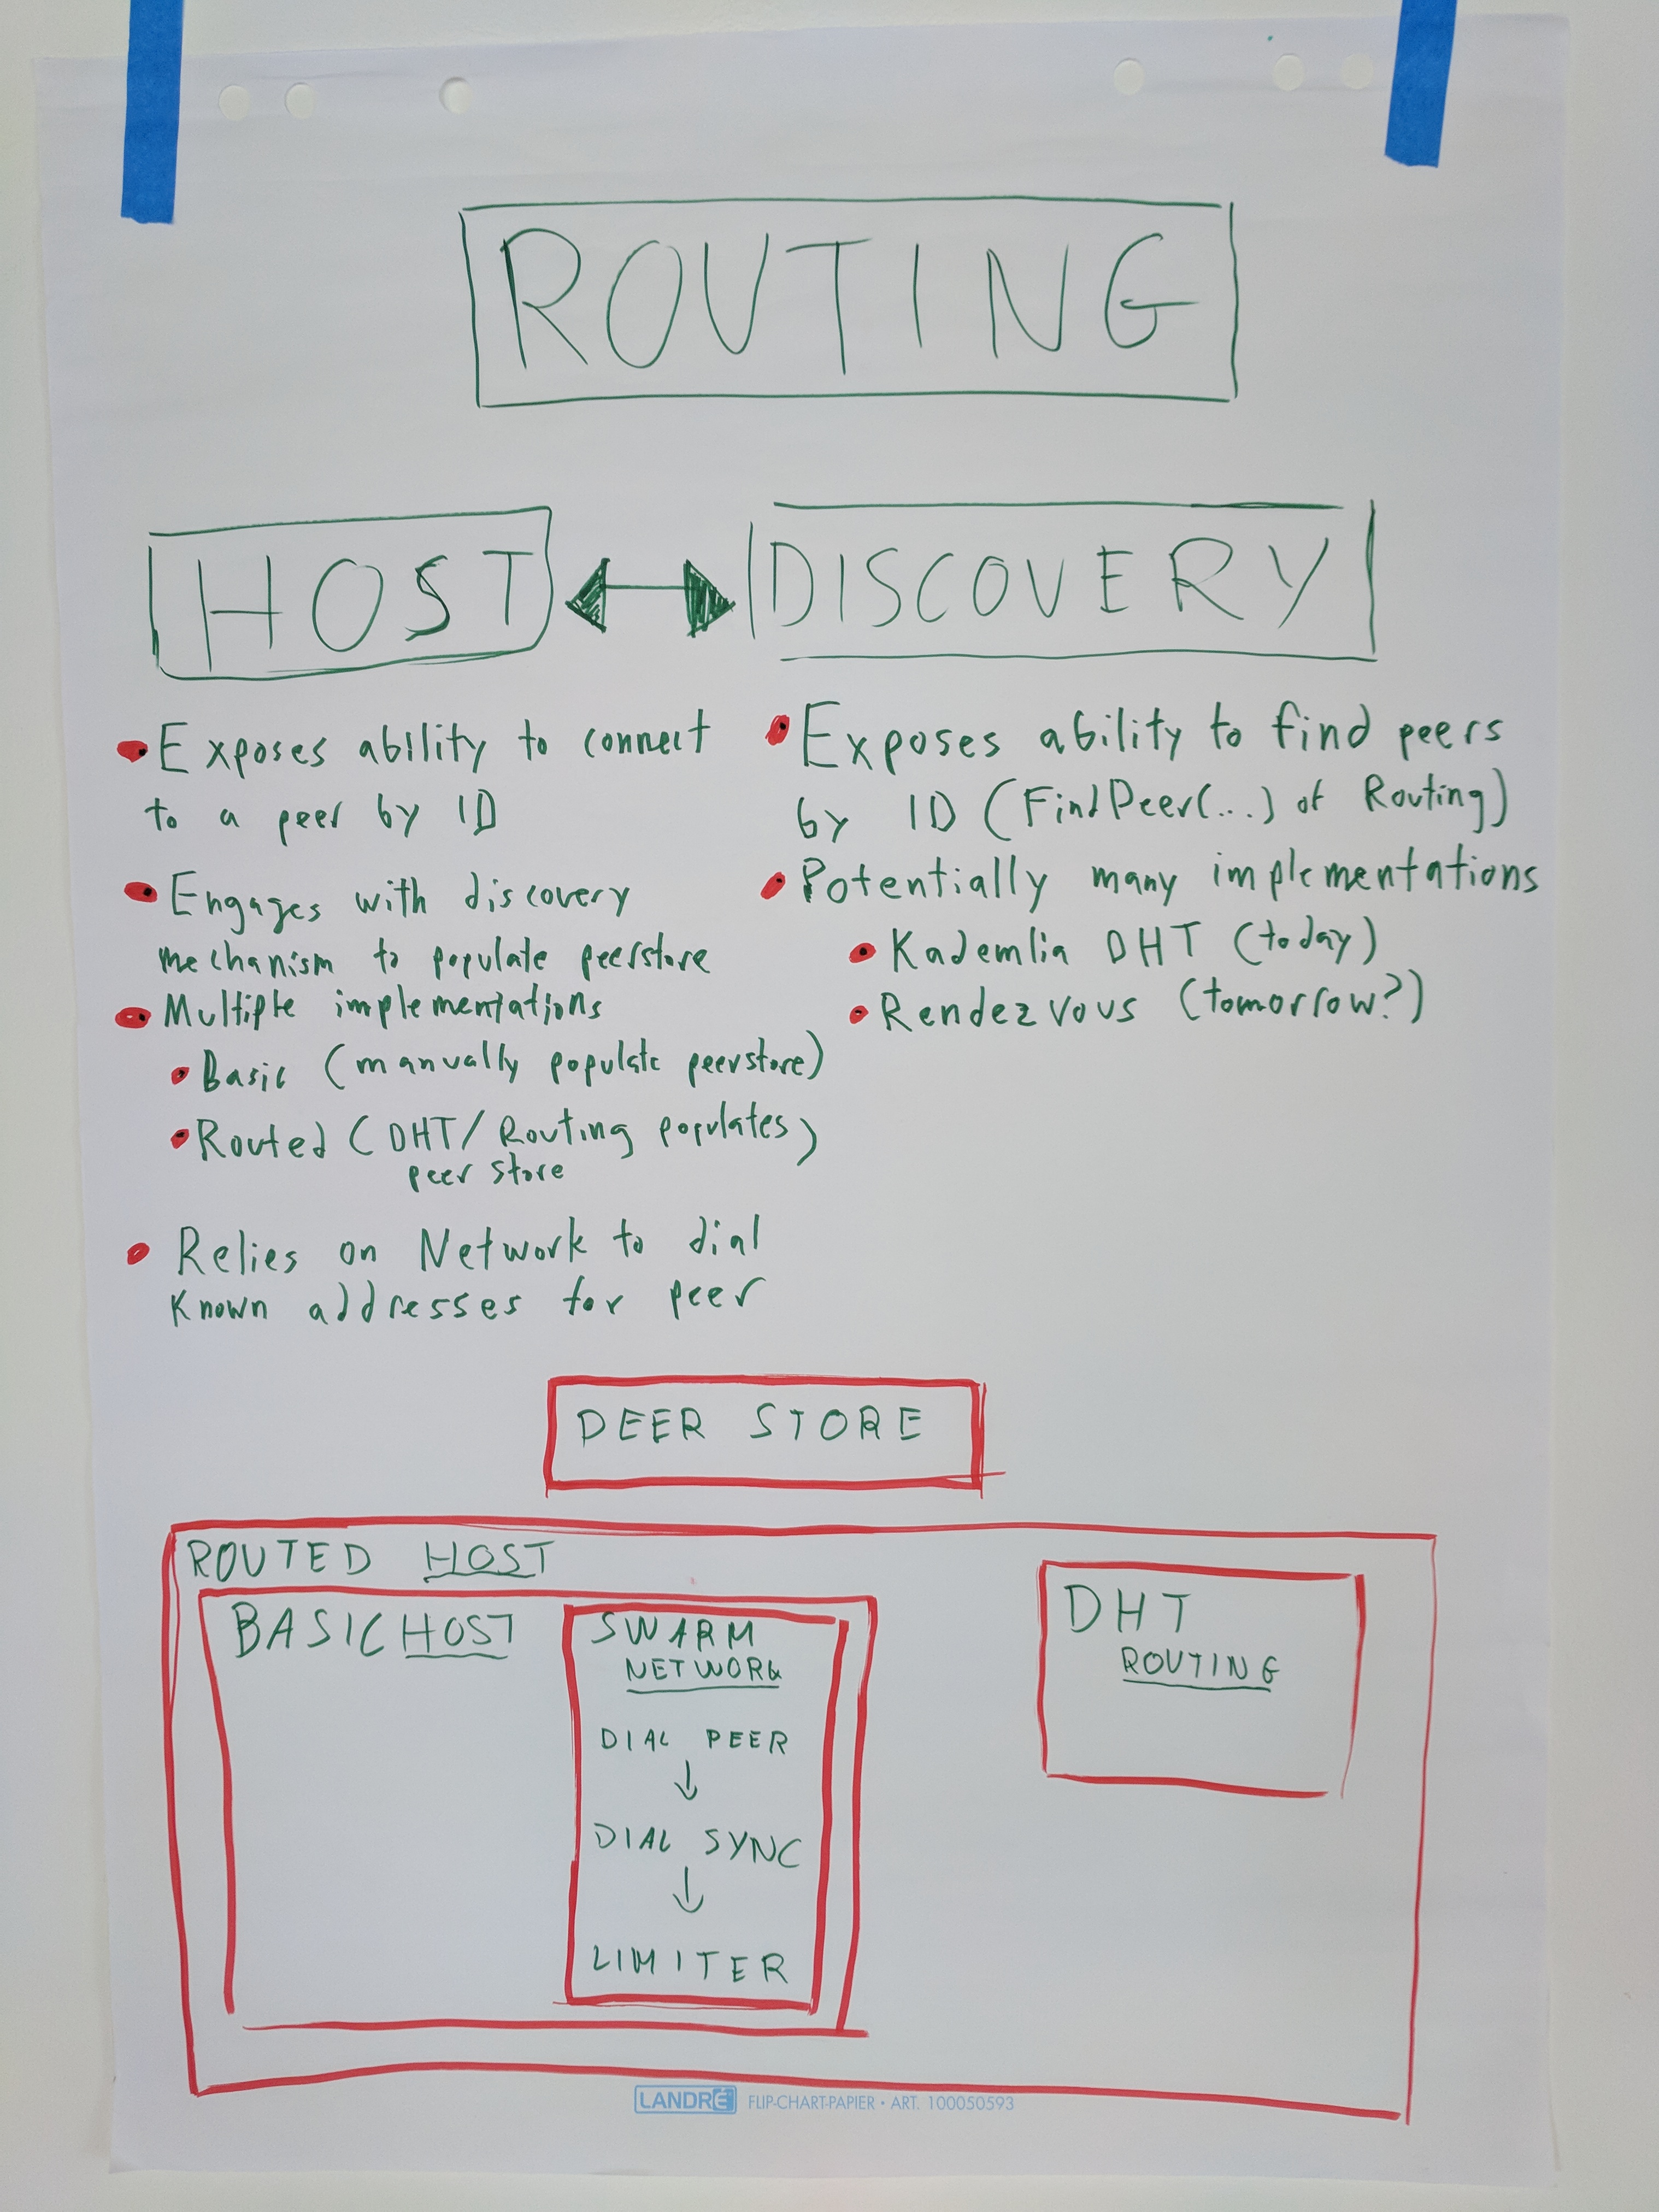 ROUTING
HOST
DISCOVERY
Exposes ability to connect
to a peer by ID
Engages with discovery
mechanism to populate peerstore
Multiple implementations
Basic (manually populate peerstore)
Routed (DHT/Routing populates)
peer store
Relies on Network to dial
known addresses for peer
Exposes ability to find peers
by ID (FindPeer(...) of Routing)
Potentially many implementations
Kademlia DHT (today)
Rendezvous (tomorrow?)
PEER STORE
ROUTED HOST
BASIC HOST
SWARM
NETWORK
DIAL PEER
↓
DIAL SYNC
↓
LIMITER
DHT
ROUTING
LANDRÉ FLIP-CHART-PAPIER • ART. 100050593